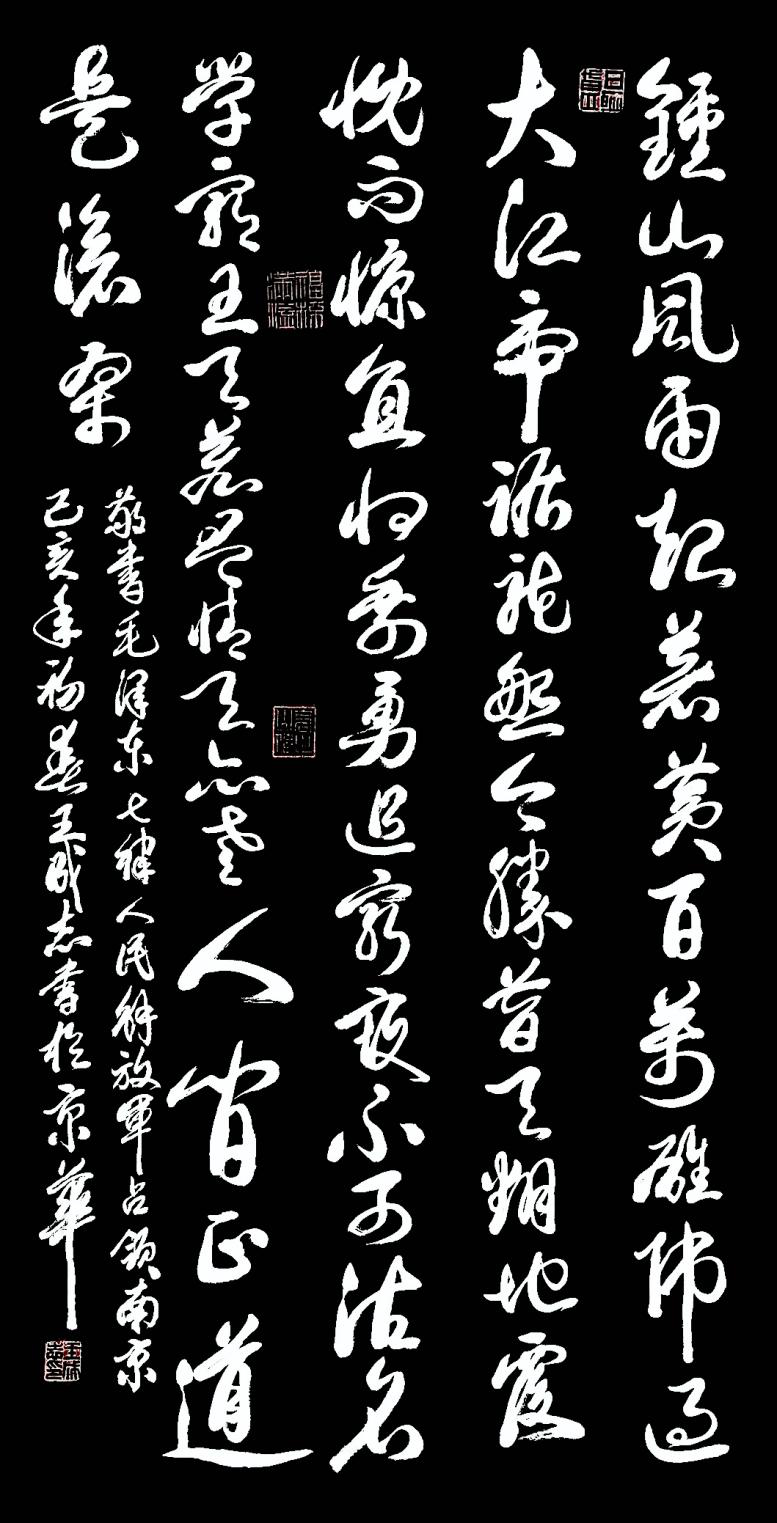 鍾山風雨起蒼黃百萬雄師過
大江虎踞龍盤今勝昔天翻地覆
慨而慷宜將剩勇追窮寇不可沽名
学霸王天若有情天亦老人间正道
是滄桑
敬書毛澤东七律人民解放軍占領南京
己亥年初春王成志書於京華